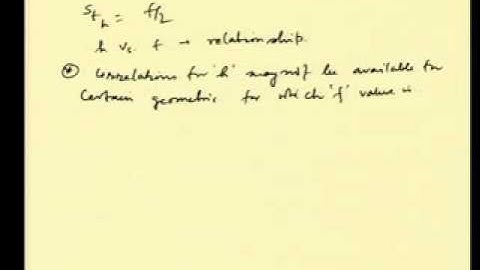 St_h = f/2
h vs. f → relationship.
* Correlations for 'h' may not be available for
Certain geometric for which 'f' value is